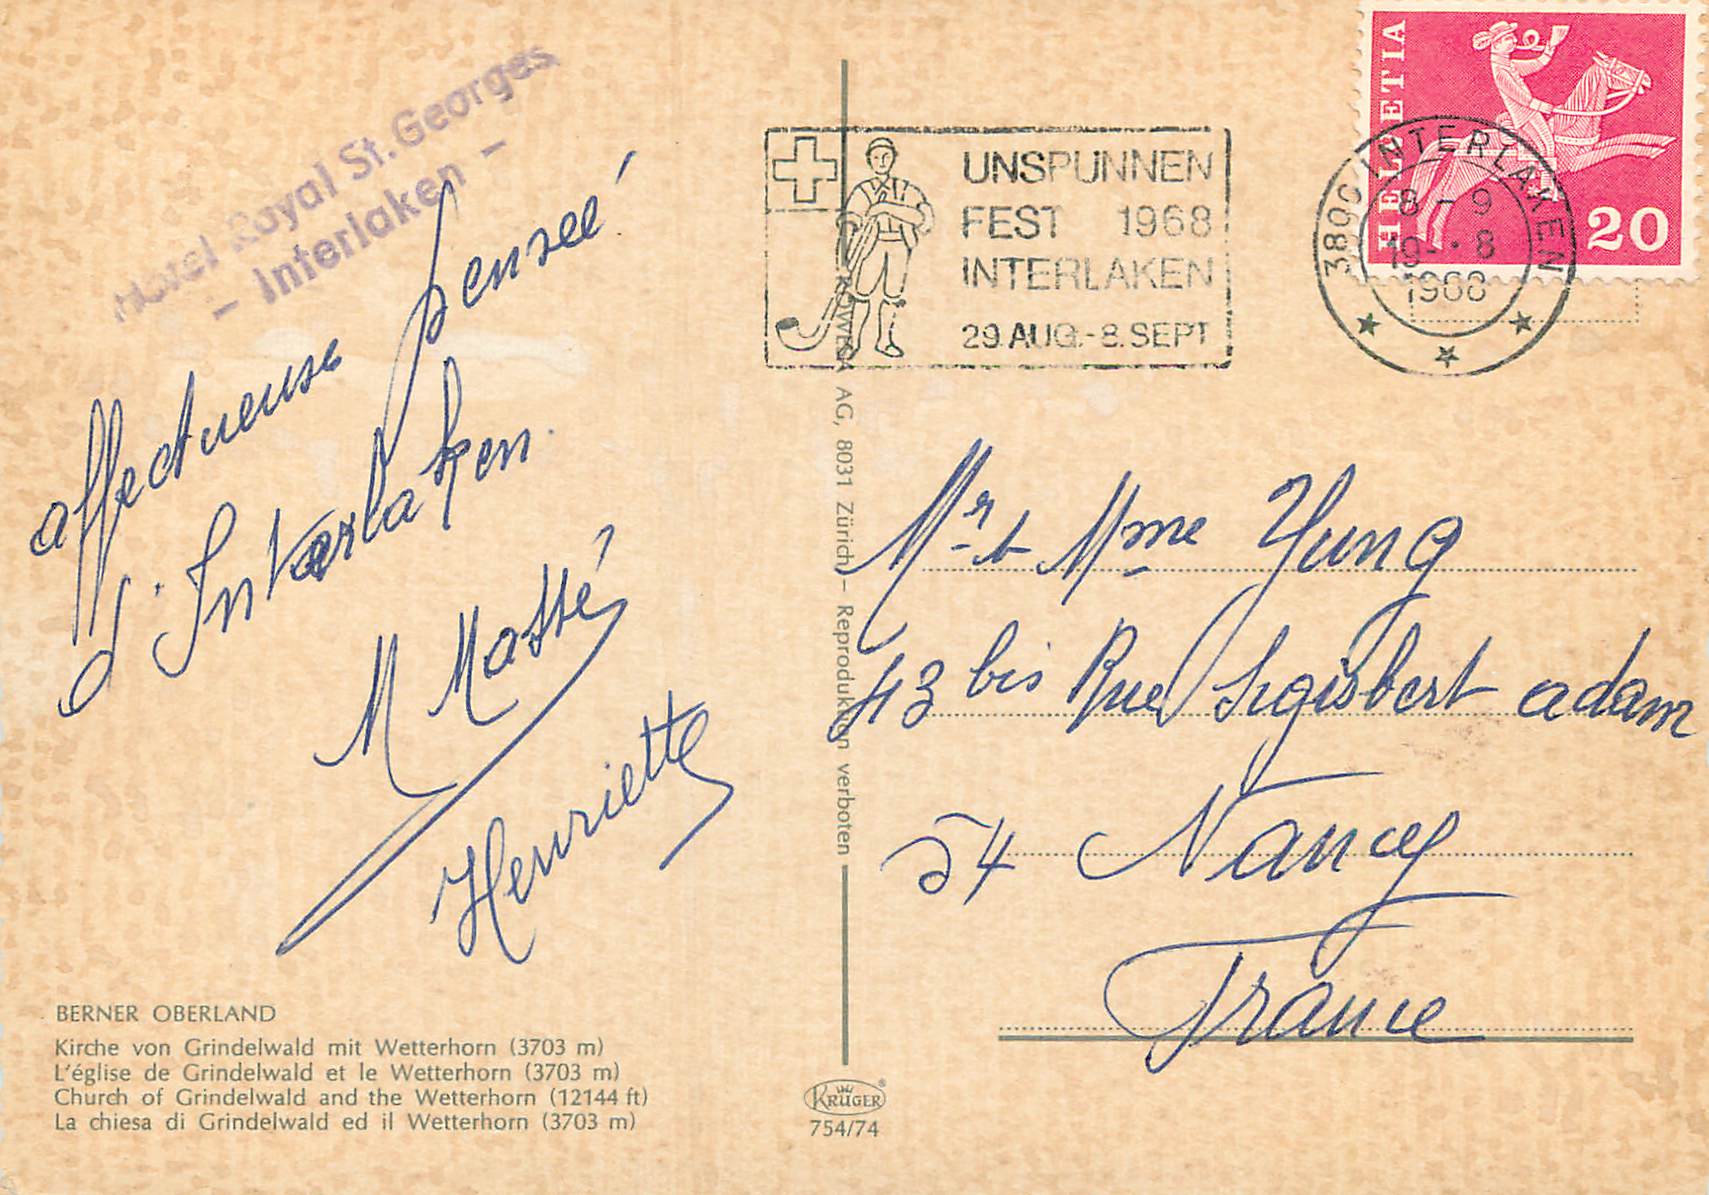 Hotel Royal St. Georges
- Interlaken -
affectueuse pensée
d'Interlaken.
M Massé
Henriette
BERNER OBERLAND
Kirche von Grindelwald mit Wetterhorn (3703 m)
L'église de Grindelwald et le Wetterhorn (3703 m)
Church of Grindelwald and the Wetterhorn (12144 ft)
La chiesa di Grindelwald ed il Wetterhorn (3703 m)
AG, 8031 Zürich - Reproduktion verboten
KRÜGER
754/74
UNSPUNNEN
FEST 1968
INTERLAKEN
29. AUG.-8. SEPT
3800 INTERLAKEN
8-9
19-.8
1968
HELVETIA
20
Mr t Mme Yung
43 bis Rue Sigisbert adam
54 Nancy
France